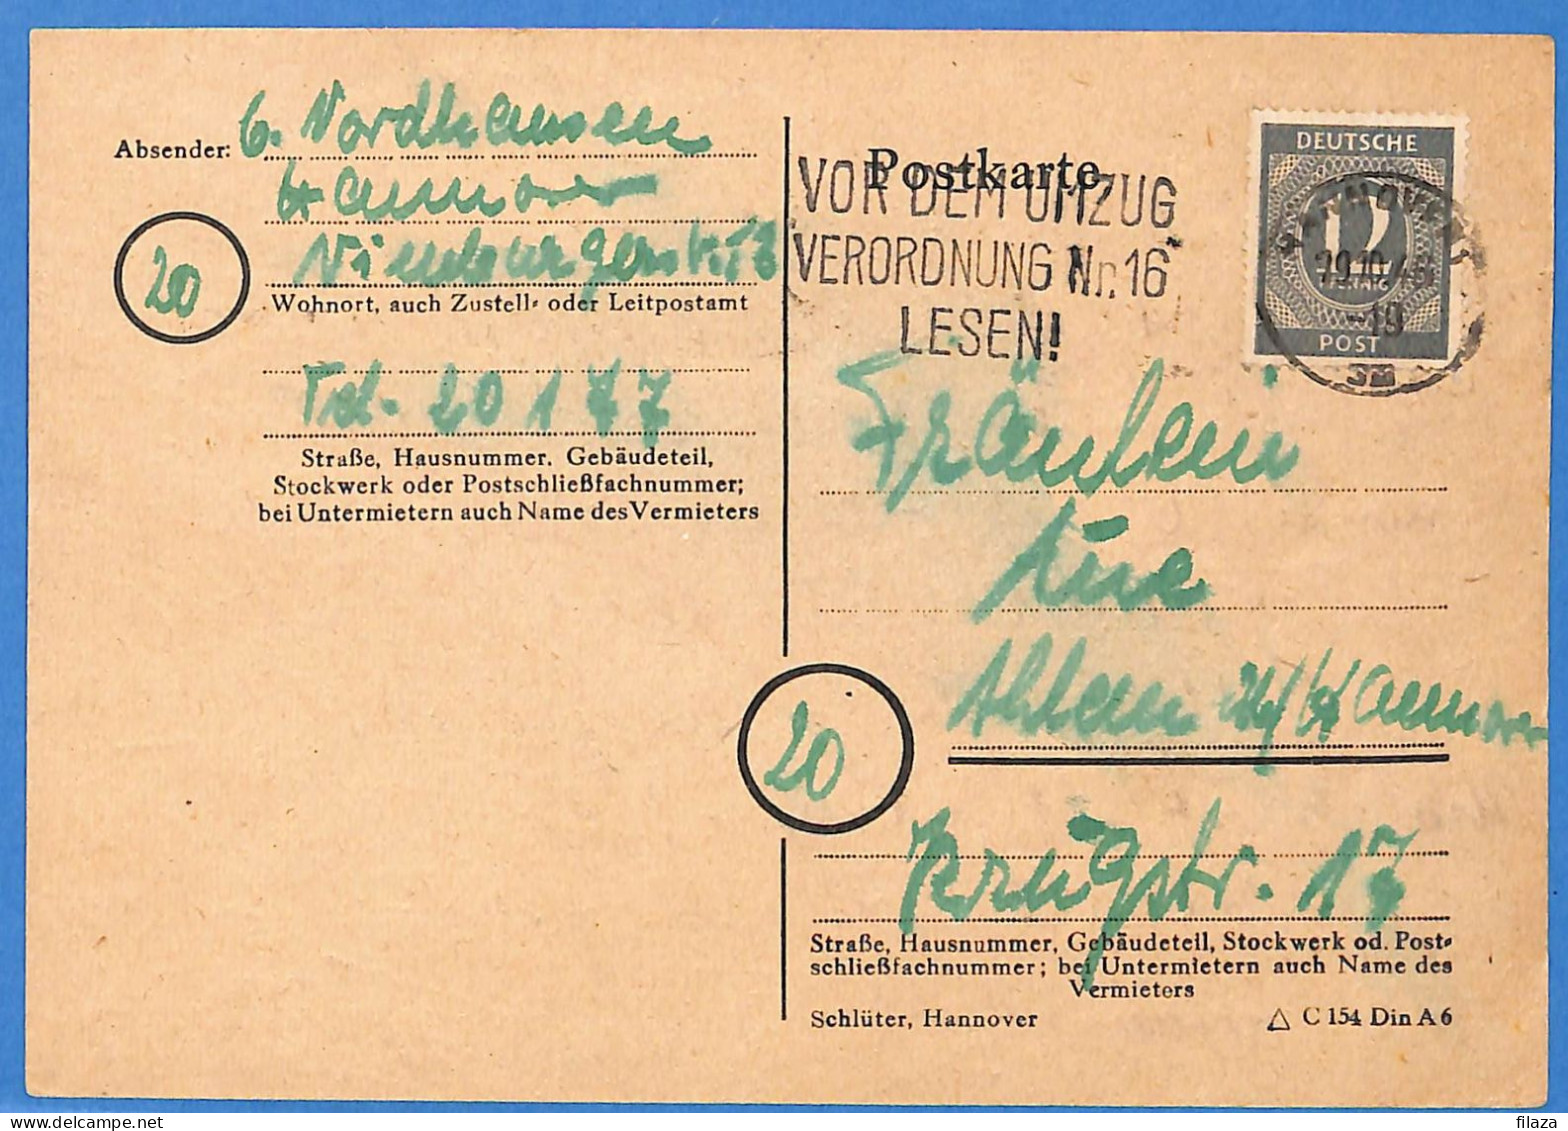 Absender: G. Nordhausen
Hannover
20
Wohnort, auch Zustell- oder Leitpostamt
Tel. 20177
Straße, Hausnummer, Gebäudeteil,
Stockwerk oder Postschließfachnummer;
bei Untermietern auch Name des Vermieters
Postkarte
VOR DEM UMZUG
VERORDNUNG Nr. 16
LESEN!
DEUTSCHE
12
PFENNIG
POST
HANNOVER
29.10.46
-19
Fräulein
Ahlem /Hannover
20
Krugstr. 17
Straße, Hausnummer, Gebäudeteil, Stockwerk od. Post-
schließfachnummer; bei Untermietern auch Name des
Vermieters
Schlüter, Hannover
C 154 Din A 6
filaza